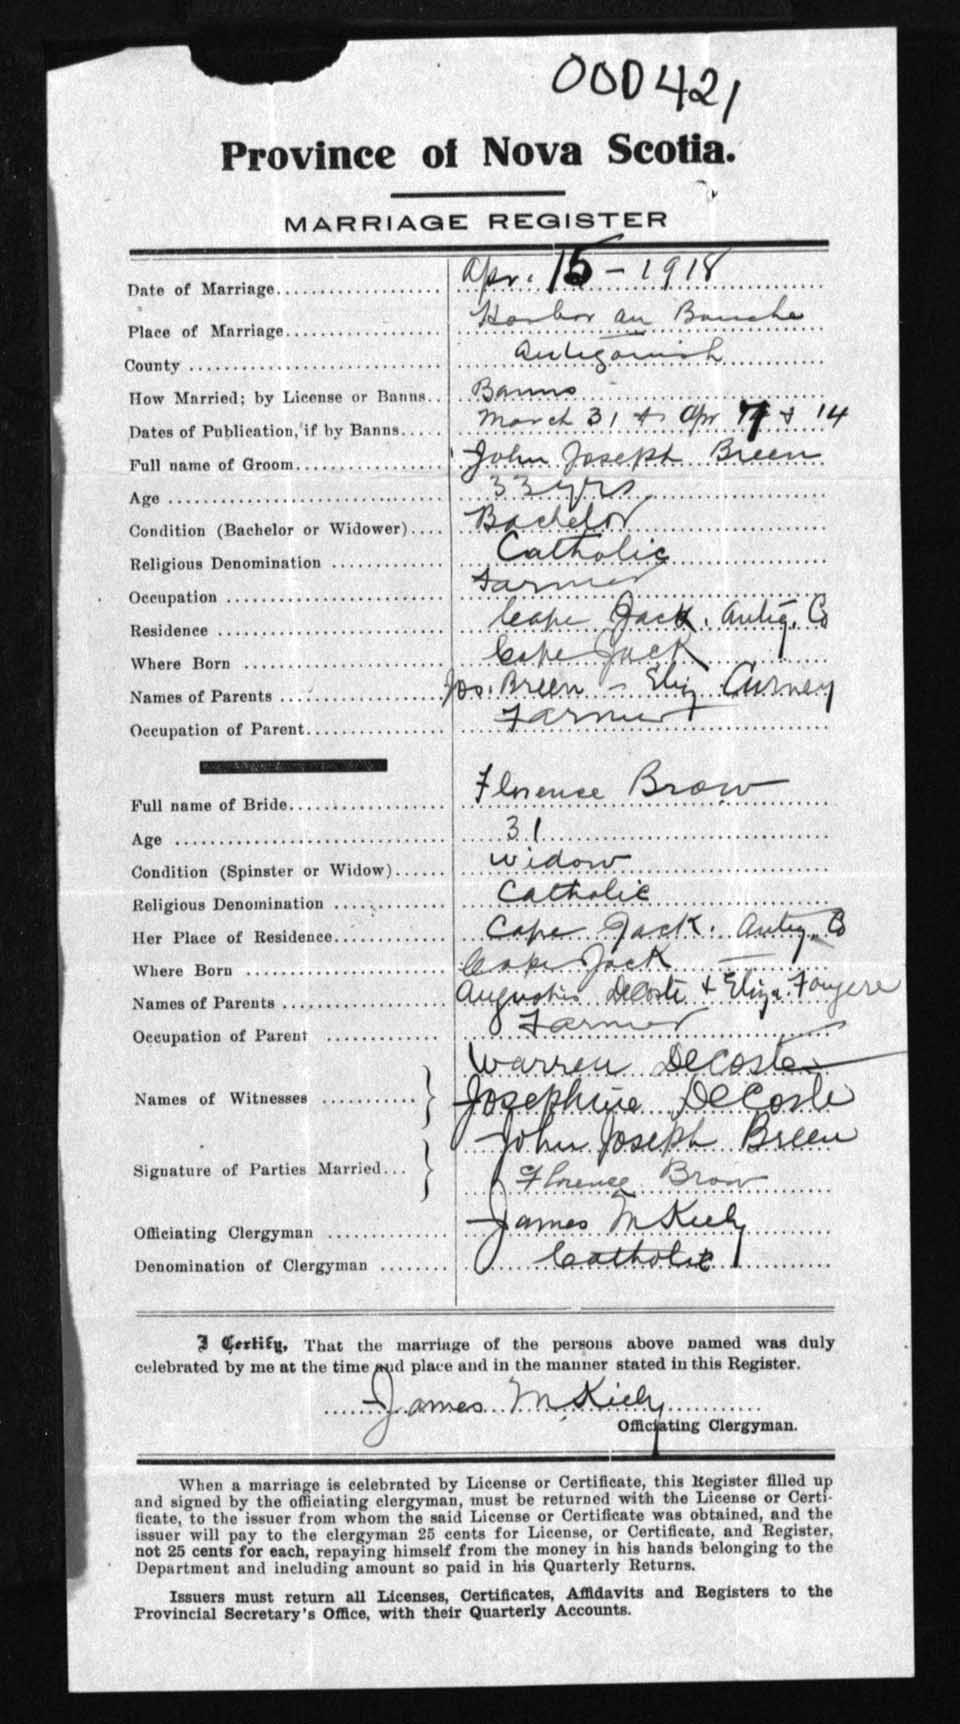 000421
Province of Nova Scotia.
MARRIAGE REGISTER
Date of Marriage Apr. 15 - 1918
Place of Marriage Harbor au Bouche
County Antigonish
How Married; by License or Banns Banns
Dates of Publication, if by Banns March 31 & Apr 7 & 14
Full name of Groom John Joseph Breen
Age 33 yrs
Condition (Bachelor or Widower) Bachelor
Religious Denomination Catholic
Occupation Farmer
Residence Cape Jack. Antig. Co
Where Born Cape Jack
Names of Parents Jos. Breen - Eliz Curney
Occupation of Parent Farmer
Full name of Bride Florence Brow
Age 31
Condition (Spinster or Widow) Widow
Religious Denomination Catholic
Her Place of Residence Cape Jack. Antig. Co
Where Born Cape Jack
Names of Parents Augustus DeCoste & Eliza Fougere
Occupation of Parent Farmer
Names of Witnesses Warren DeCoste
Josephine DeCoste
Signature of Parties Married John Joseph Breen
Florence Brow
Officiating Clergyman James McKiely
Denomination of Clergyman Catholic
I Certify, That the marriage of the persons above named was duly
celebrated by me at the time and place and in the manner stated in this Register.
James McKiely
Officiating Clergyman.
When a marriage is celebrated by License or Certificate, this Register filled up
and signed by the officiating clergyman, must be returned with the License or Certi-
ficate, to the issuer from whom the said License or Certificate was obtained, and the
issuer will pay to the clergyman 25 cents for License, or Certificate, and Register,
not 25 cents for each, repaying himself from the money in his hands belonging to the
Department and including amount so paid in his Quarterly Returns.
Issuers must return all Licenses, Certificates, Affidavits and Registers to the
Provincial Secretary's Office, with their Quarterly Accounts.